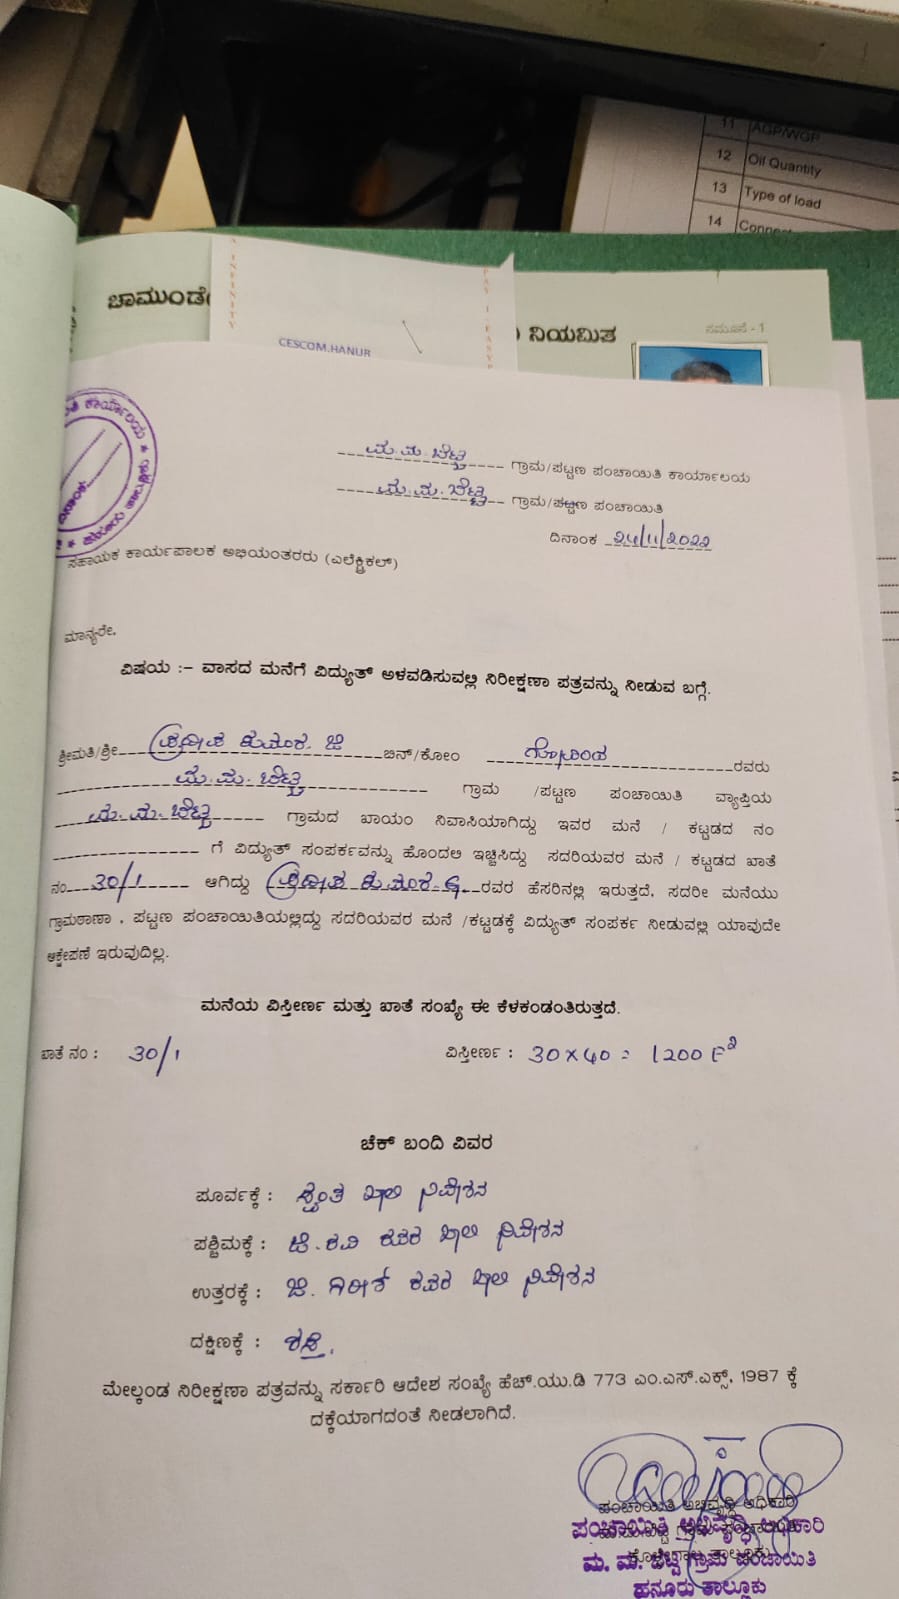 11 AGP/WGP
12 Oil Quantity
13 Type of load
14
ನಿಯಮಿತ
ನಮೂನೆ - 1
INFINITY
CESCOM.HANUR
ಮ.ಮ.ಬೆಟ್ಟ ಗ್ರಾಮ/ಪಟ್ಟಣ ಪಂಚಾಯಿತಿ ಕಾರ್ಯಾಲಯ
ಮ.ಮ.ಬೆಟ್ಟ ಗ್ರಾಮ/ಪಟ್ಟಣ ಪಂಚಾಯಿತಿ
ದಿನಾಂಕ 24/11/2022
ಸಹಾಯಕ ಕಾರ್ಯಪಾಲಕ ಅಭಿಯಂತರರು (ಎಲೆಕ್ಟ್ರಿಕಲ್)
ಮಾನ್ಯರೇ,
ವಿಷಯ :– ವಾಸದ ಮನೆಗೆ ವಿದ್ಯುತ್ ಅಳವಡಿಸುವಲ್ಲಿ ನಿರೀಕ್ಷಣಾ ಪತ್ರವನ್ನು ನೀಡುವ ಬಗ್ಗೆ.
ಶ್ರೀಮತಿ/ಶ್ರೀ ಪ್ರದೀಪ ಕುಮಾರ. ಜಿ ಬಿನ್/ಕೋಂ ಗೋವಿಂದ ರವರು
ಮ.ಮ.ಬೆಟ್ಟ ಗ್ರಾಮ /ಪಟ್ಟಣ ಪಂಚಾಯಿತಿ ವ್ಯಾಪ್ತಿಯ
ಮ.ಮ.ಬೆಟ್ಟ ಗ್ರಾಮದ ಖಾಯಂ ನಿವಾಸಿಯಾಗಿದ್ದು ಇವರ ಮನೆ / ಕಟ್ಟಡದ ನಂ
ಗೆ ವಿದ್ಯುತ್ ಸಂಪರ್ಕವನ್ನು ಹೊಂದಲಿ ಇಚ್ಚಿಸಿದ್ದು ಸದರಿಯವರ ಮನೆ / ಕಟ್ಟಡದ ಖಾತೆ
ನಂ 30/1 ಆಗಿದ್ದು ಪ್ರದೀಪ ಕುಮಾರ. ಜಿ. ರವರ ಹೆಸರಿನಲ್ಲಿ ಇರುತ್ತದೆ, ಸದರೀ ಮನೆಯು
ಗ್ರಾಮಠಾಣಾ , ಪಟ್ಟಣ ಪಂಚಾಯಿತಿಯಲ್ಲಿದ್ದು ಸದರಿಯವರ ಮನೆ /ಕಟ್ಟಡಕ್ಕೆ ವಿದ್ಯುತ್ ಸಂಪರ್ಕ ನೀಡುವಲ್ಲಿ ಯಾವುದೇ
ಆಕ್ಷೇಪಣೆ ಇರುವುದಿಲ್ಲ.
ಮನೆಯ ವಿಸ್ತೀರ್ಣ ಮತ್ತು ಖಾತೆ ಸಂಖ್ಯೆ ಈ ಕೆಳಕಂಡಂತಿರುತ್ತದೆ.
ಖಾತೆ ನಂ : 30/1 ವಿಸ್ತೀರ್ಣ : 30×40 = 1200 F²
ಚೆಕ್ ಬಂದಿ ವಿವರ
ಪೂರ್ವಕ್ಕೆ : ಸ್ವಂತ ಖಾಲಿ ನಿವೇಶನ
ಪಶ್ಚಿಮಕ್ಕೆ : ಜೆ. ರವಿ ರವರ ಖಾಲಿ ನಿವೇಶನ
ಉತ್ತರಕ್ಕೆ : ಜಿ. ಗಿರೀಶ್ ರವರ ಖಾಲಿ ನಿವೇಶನ
ದಕ್ಷಿಣಕ್ಕೆ : ರಸ್ತೆ.
ಮೇಲ್ಕಂಡ ನಿರೀಕ್ಷಣಾ ಪತ್ರವನ್ನು ಸರ್ಕಾರಿ ಆದೇಶ ಸಂಖ್ಯೆ ಹೆಚ್.ಯು.ಡಿ 773 ಎಂ.ಎಸ್.ಎಕ್ಸ್, 1987 ಕ್ಕೆ
ದಕ್ಕೆಯಾಗದಂತೆ ನೀಡಲಾಗಿದೆ.
ಪಂಚಾಯಿತಿ ಅಭಿವೃದ್ಧಿ ಅಧಿಕಾರಿ
ಪಂಚಾಯಿತಿ ಅಭಿವೃದ್ಧಿ ಅಧಿಕಾರಿ
ಮ. ಮ. ಬೆಟ್ಟ ಗ್ರಾಮ ಪಂಚಾಯಿತಿ
ಹನೂರು ತಾಲ್ಲೂಕು